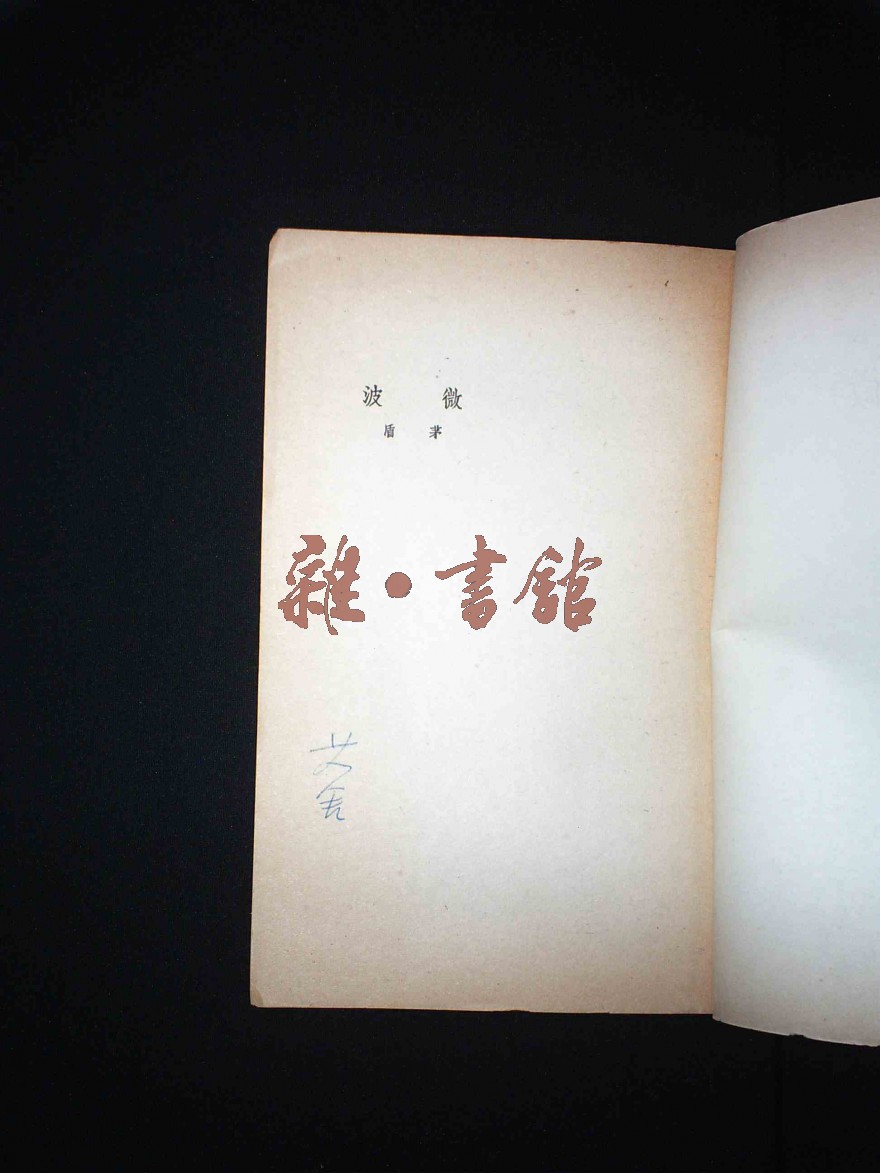 微波
茅盾
雜•書館
艾